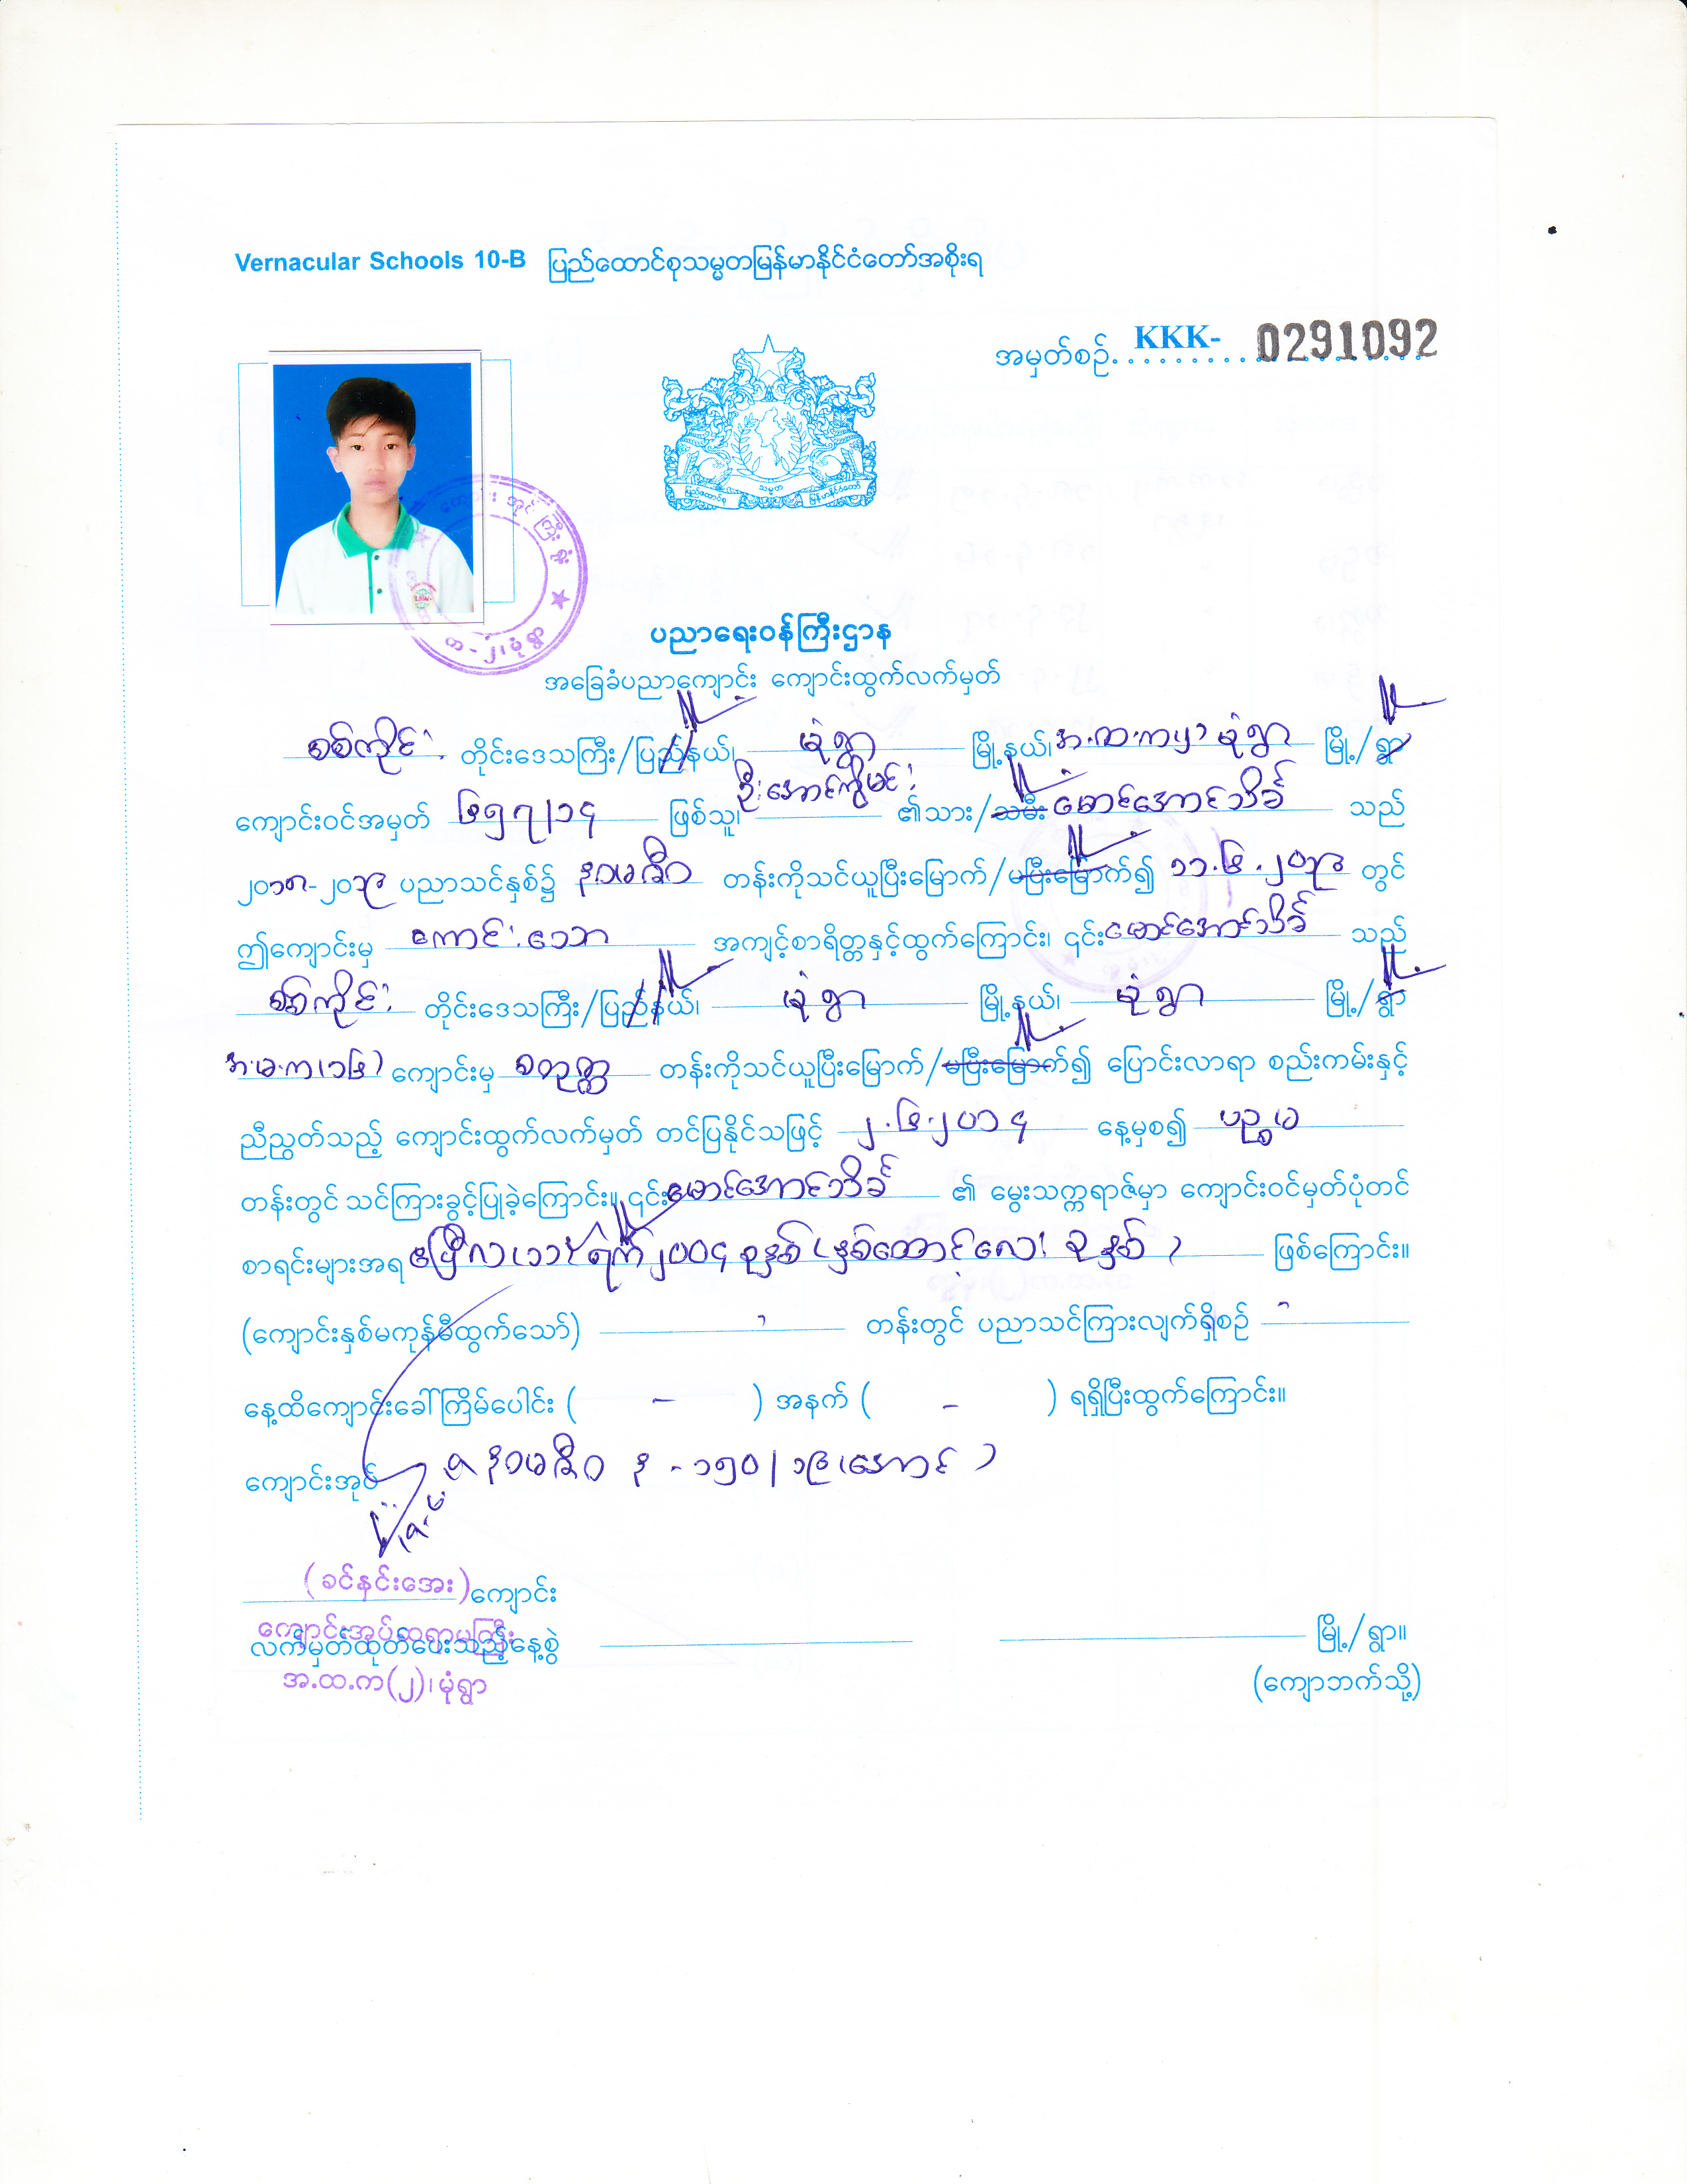 Vernacular Schools 10-B ပြည်ထောင်စုသမ္မတမြန်မာနိုင်ငံတော်အစိုးရ
အမှတ်စဉ်. KKK- 0291092
ပညာရေးဝန်ကြီးဌာန
အခြေခံပညာကျောင်း ကျောင်းထွက်လက်မှတ်
စစ်ကိုင်း တိုင်းဒေသကြီး/ပြည်နယ်၊ မုံရွာ မြို့နယ်၊ အ.ထ.က(၂) မုံရွာ မြို့/ရွာ
ကျောင်းဝင်အမှတ် ၆၅၇/၁၄ ဖြစ်သူ၊ ဦးအောင်ကိုမင်း ၏သား/သမီး မောင်အောင်သိခ် သည်
၂၀၁၈-၂၀၁၉ ပညာသင်နှစ်၌ နဝမဇီဝ တန်းကိုသင်ယူပြီးမြောက်/မပြီးမြောက်၍ ၁၁.၆.၂၀၁၉ တွင်
ဤကျောင်းမှ ကောင်းသော အကျင့်စာရိတ္တနှင့်ထွက်ကြောင်း၊ ၎င်း မောင်အောင်သိခ် သည်
စစ်ကိုင်း တိုင်းဒေသကြီး/ပြည်နယ်၊ မုံရွာ မြို့နယ်၊ မုံရွာ မြို့/ရွာ
အ.မ.က(၁၆) ကျောင်းမှ စတုတ္ထ တန်းကိုသင်ယူပြီးမြောက်/မပြီးမြောက်၍ ပြောင်းလာရာ စည်းကမ်းနှင့်
ညီညွတ်သည့် ကျောင်းထွက်လက်မှတ် တင်ပြနိုင်သဖြင့် ၂.၆.၂၀၁၄ နေ့မှစ၍ ပဉ္စမ
တန်းတွင် သင်ကြားခွင့်ပြုခဲ့ကြောင်း။ ၎င်း မောင်အောင်သိခ် ၏ မွေးသက္ကရာဇ်မှာ ကျောင်းဝင်မှတ်ပုံတင်
စာရင်းများအရ ဧပြီလ (၁၁) ရက် ၂၀၀၄ ခုနှစ် (နှစ်ထောင်လေး ခုနှစ်) ဖြစ်ကြောင်း။
(ကျောင်းနှစ်မကုန်မီထွက်သော်) တန်းတွင် ပညာသင်ကြားလျက်ရှိစဉ်
နေ့ထိကျောင်းခေါ်ကြိမ်ပေါင်း ( - ) အနက် ( - ) ရရှိပြီးထွက်ကြောင်း။
ကျောင်းအုပ် နဝမဇီဝ န - ၁၅၀/၁၉ (အောင်)
(ခင်နှင်းအေး) ကျောင်း
ကျောင်းအုပ်ဆရာမကြီး
လက်မှတ်ထုတ်ပေးသည့်နေ့စွဲ မြို့/ရွာ။
အ.ထ.က(၂)၊ မုံရွာ
(ကျောဘက်သို့)